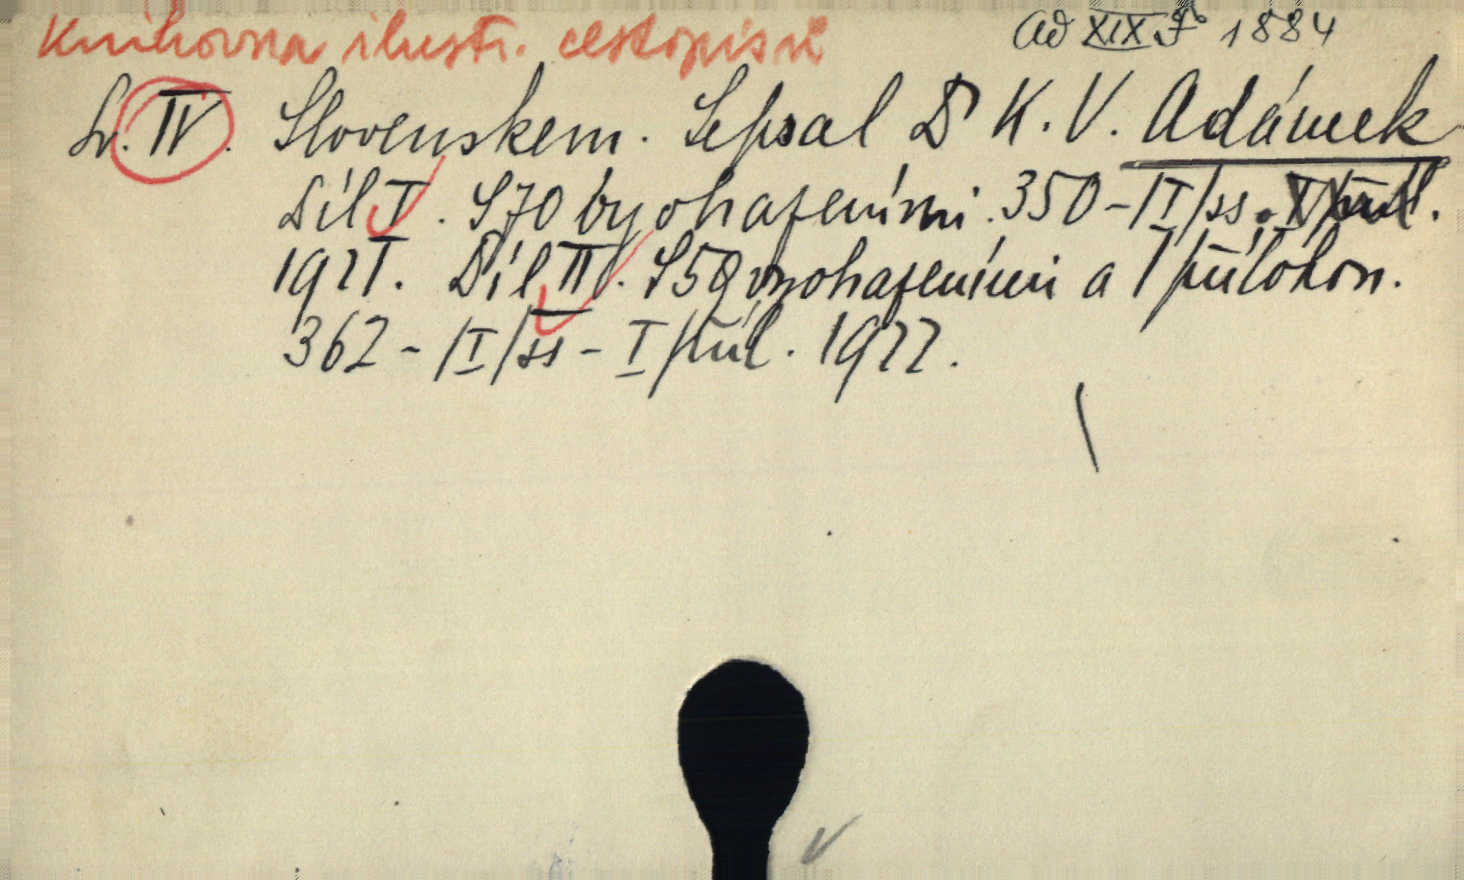 Knihovna ilustr. cestopisů
Ad XIX F 1884
Sv. IV. Slovenskem. Sepsal Dr K. V. Adámek
Díl I. S 70 vyobrazeními. 350 - /I/ ss.
1921. Díl II. S 59 vyobrazeními a 1 přílohou.
362 - /I/ ss - I příl. 1922.